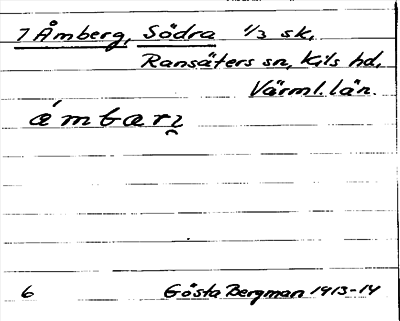 7 Åmberg, Södra 1/3 sk.
Ransäters sn, Kils hd.
Värml. län.
æ´mbær
6 Gösta Bergman 1913-14